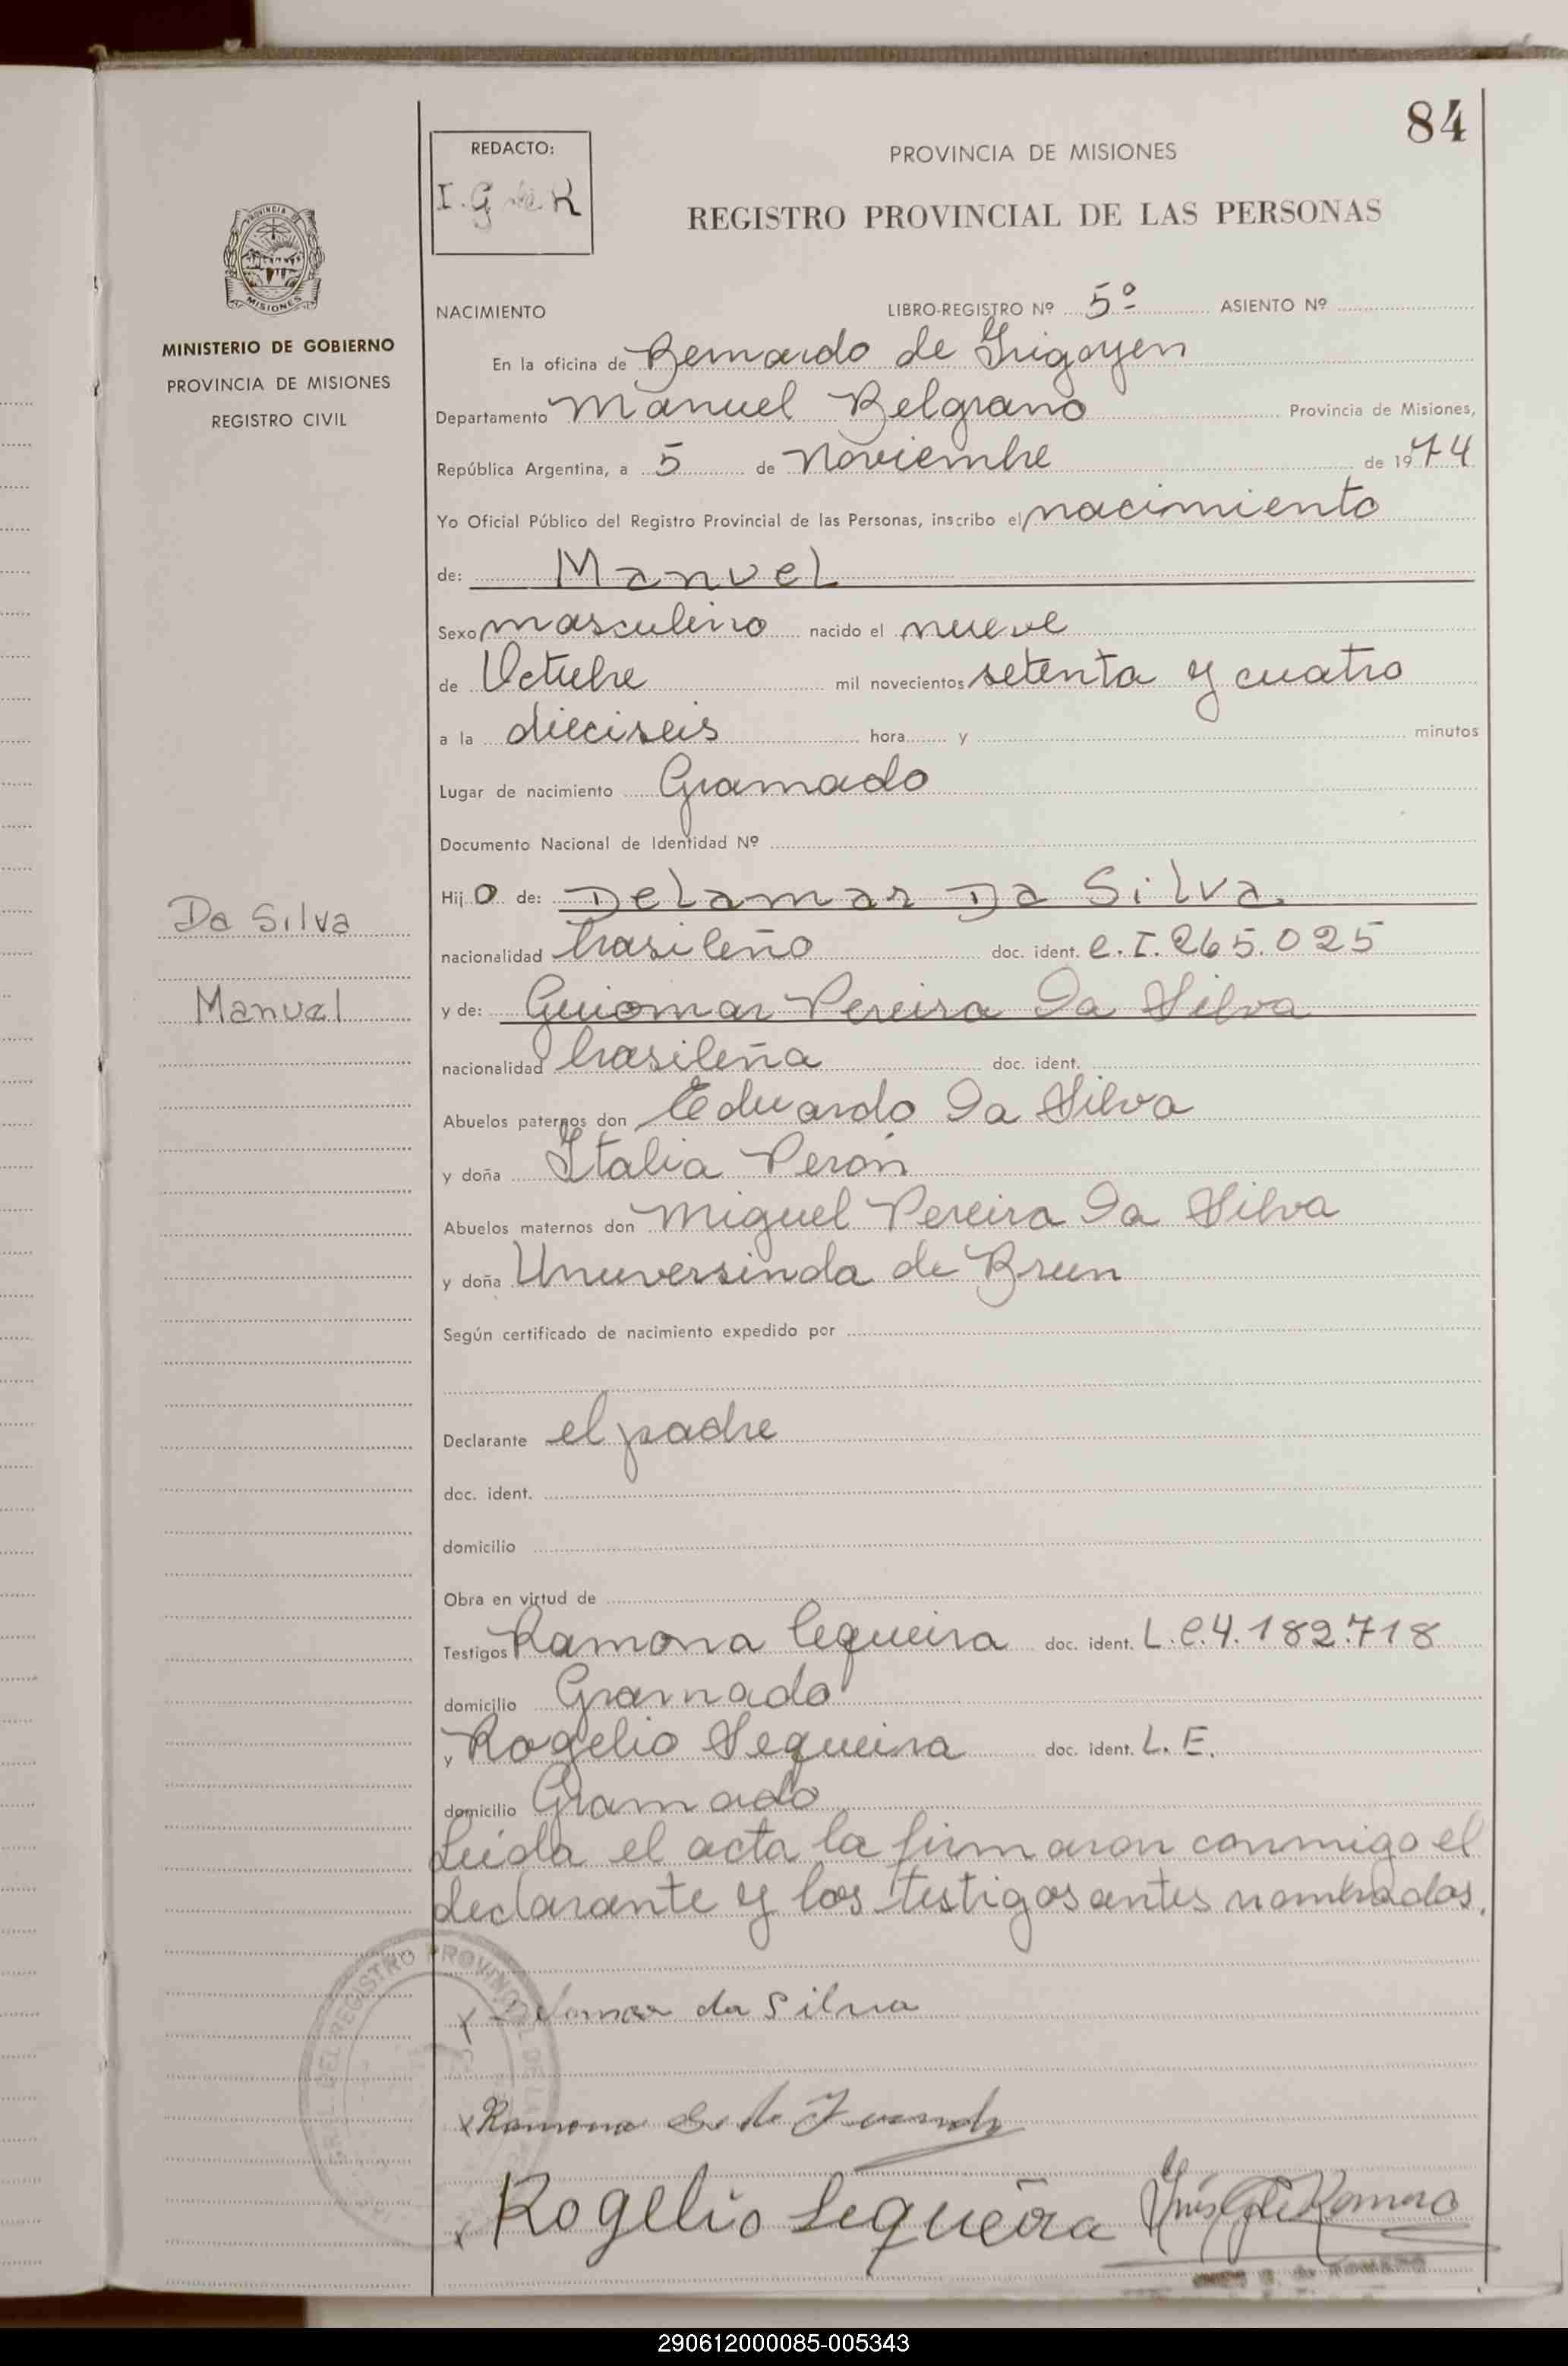 84
REDACTO:
I. G de R
PROVINCIA DE MISIONES
REGISTRO PROVINCIAL DE LAS PERSONAS
MISIONES
MINISTERIO DE GOBIERNO
PROVINCIA DE MISIONES
REGISTRO CIVIL
NACIMIENTO LIBRO-REGISTRO Nº 5º ASIENTO Nº
En la oficina de Bernardo de Irigoyen
Departamento Manuel Belgrano Provincia de Misiones,
República Argentina, a 5 de Noviembre de 1974
Yo Oficial Público del Registro Provincial de las Personas, inscribo el nacimiento
de: Manuel
Sexo masculino nacido el nueve
de Octubre mil novecientos setenta y cuatro
a la dieciseis hora y minutos
Lugar de nacimiento Gramado
Documento Nacional de Identidad Nº
Hijo de: Delamar Da Silva
Da Silva
nacionalidad brasileño doc. ident. C.I. 265.025
Manuel
y de: Guiomar Pereira Da Silva
nacionalidad brasileña doc. ident.
Abuelos paternos don Eduardo Da Silva
y doña Italia Perón
Abuelos maternos don Miguel Pereira Da Silva
y doña Universinda de Brun
Según certificado de nacimiento expedido por
Declarante el padre
doc. ident.
domicilio
Obra en virtud de
Testigos Ramona Cequeira doc. ident. L.C. 4.182.718
domicilio Gramado
y Rogelio Sequeira doc. ident. L.E.
domicilio Gramado
Leída el acta la firmaron conmigo el
declarante y los testigos antes nombrados.
DEL REGISTRO PROVINCIAL DE
x Delamar da Silva
x Ramona S. de
x Rogelio Sequeira Inés G de Romero
290612000085-005343